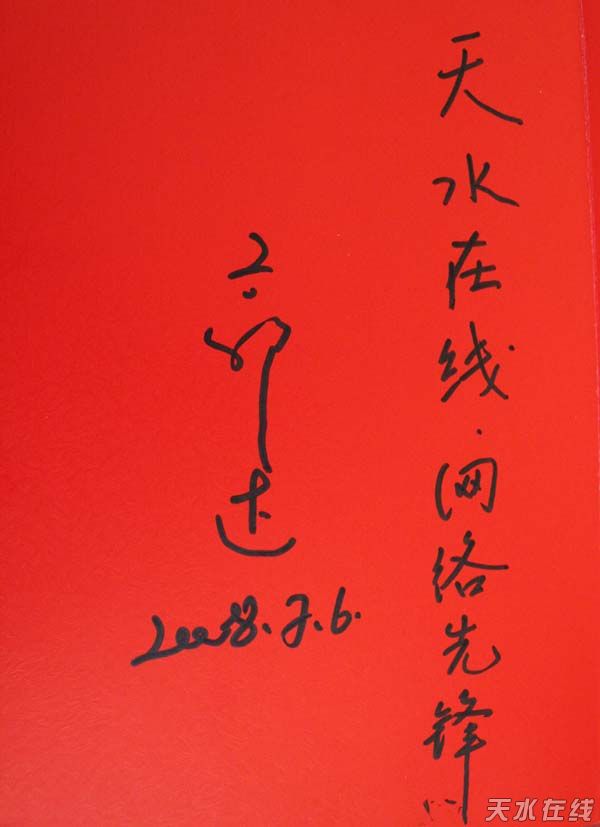 天水在线·网络先锋
2008.7.6.
天水在线